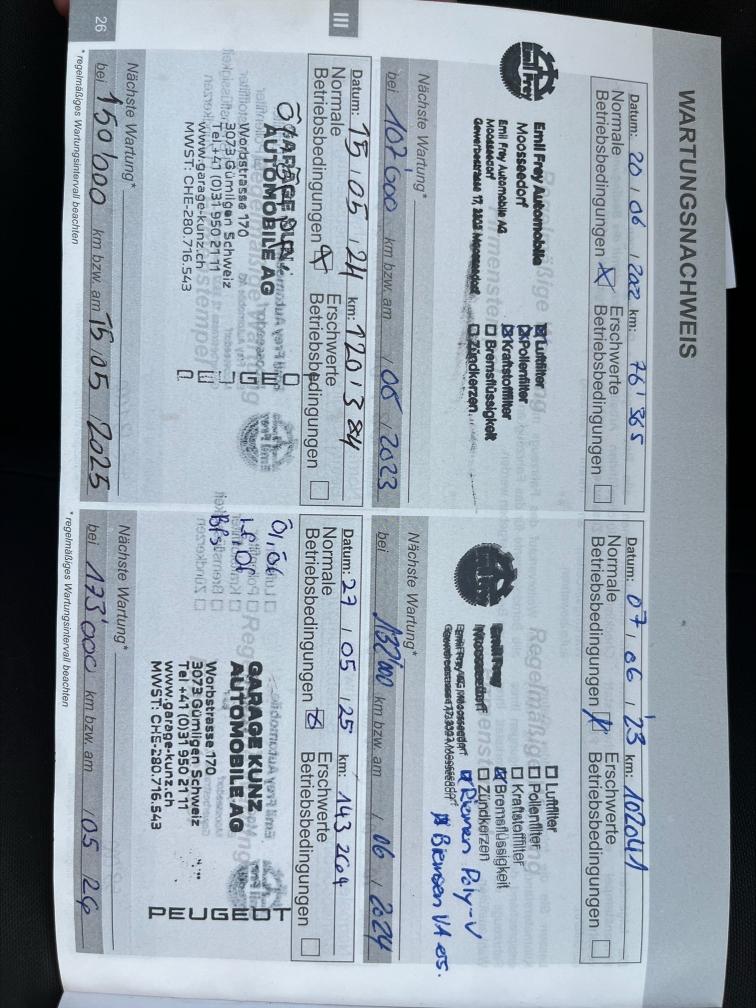 WARTUNGSNACHWEIS
Datum: 20 / 06 / 202 km: 76'365
Normale Betriebsbedingungen
Erschwerte Betriebsbedingungen
Emil Frey
Emil Frey Automobile
Moosseedorf
Emil Frey Automobile AG
Moosseedorf
Gewerbestrasse 17, 3302 Moosseedorf
Luftfilter
Pollenfilter
Kraftstofffilter
Bremsflüssigkeit
Zündkerzen
Nächste Wartung*
bei 107'600 km bzw. am / 06 / 2023
Datum: 07 / 06 / 23 km: 102041
Normale Betriebsbedingungen
Erschwerte Betriebsbedingungen
Emil Frey
Luftfilter
Pollenfilter
Kraftstofffilter
Bremsflüssigkeit
Zündkerzen
Riemen Poly-V
Bremsen VA ers.
Nächste Wartung*
bei 132'000 km bzw. am / 06 / 2024
III
Datum: 15 / 05 / 24 km: 120'384
Normale Betriebsbedingungen
Erschwerte Betriebsbedingungen
AUTOMOBILE AG
Worbstrasse 170
3073 Gümligen Schweiz
Tel +41 (0)31 950 21 11
www.garage-kunz.ch
MWST: CHE-280.716.543
Nächste Wartung*
bei 150'000 km bzw. am 15 / 05 / 2025
* regelmäßiges Wartungsintervall beachten
Datum: 27 / 05 / 25 km: 143 2604
Normale Betriebsbedingungen
Erschwerte Betriebsbedingungen
Öl, Öf
GARAGE KUNZ
AUTOMOBILE AG
Worbstrasse 170
3073 Gümligen Schweiz
Tel +41 (0)31 950 21 11
www.garage-kunz.ch
MWST: CHE-280.716.543
PEUGEOT
Nächste Wartung*
bei 173'000 km bzw. am / 05 / 26
* regelmäßiges Wartungsintervall beachten
26